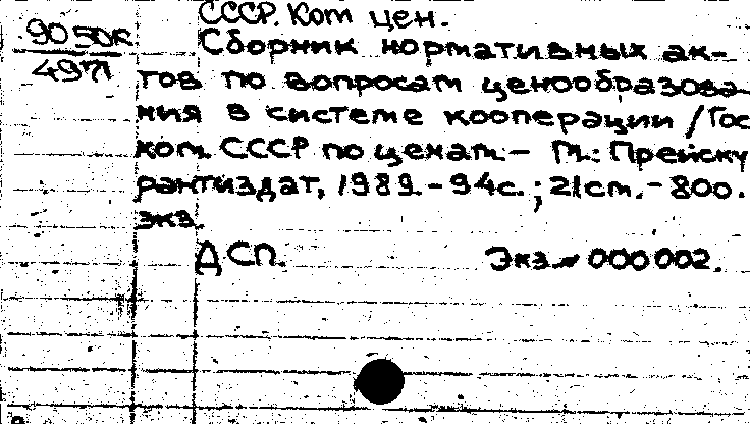 СССР. Ком цен.
90 50к
4971
Сборник нормативных ак-
тов по вопросам ценообразова-
ния в системе кооперации / Гос
ком. СССР по ценам. - М.: Прейску
рантиздат, 1989. - 94 с.; 21 см. - 800.
экз.
ДСП. Экз. № 000002.